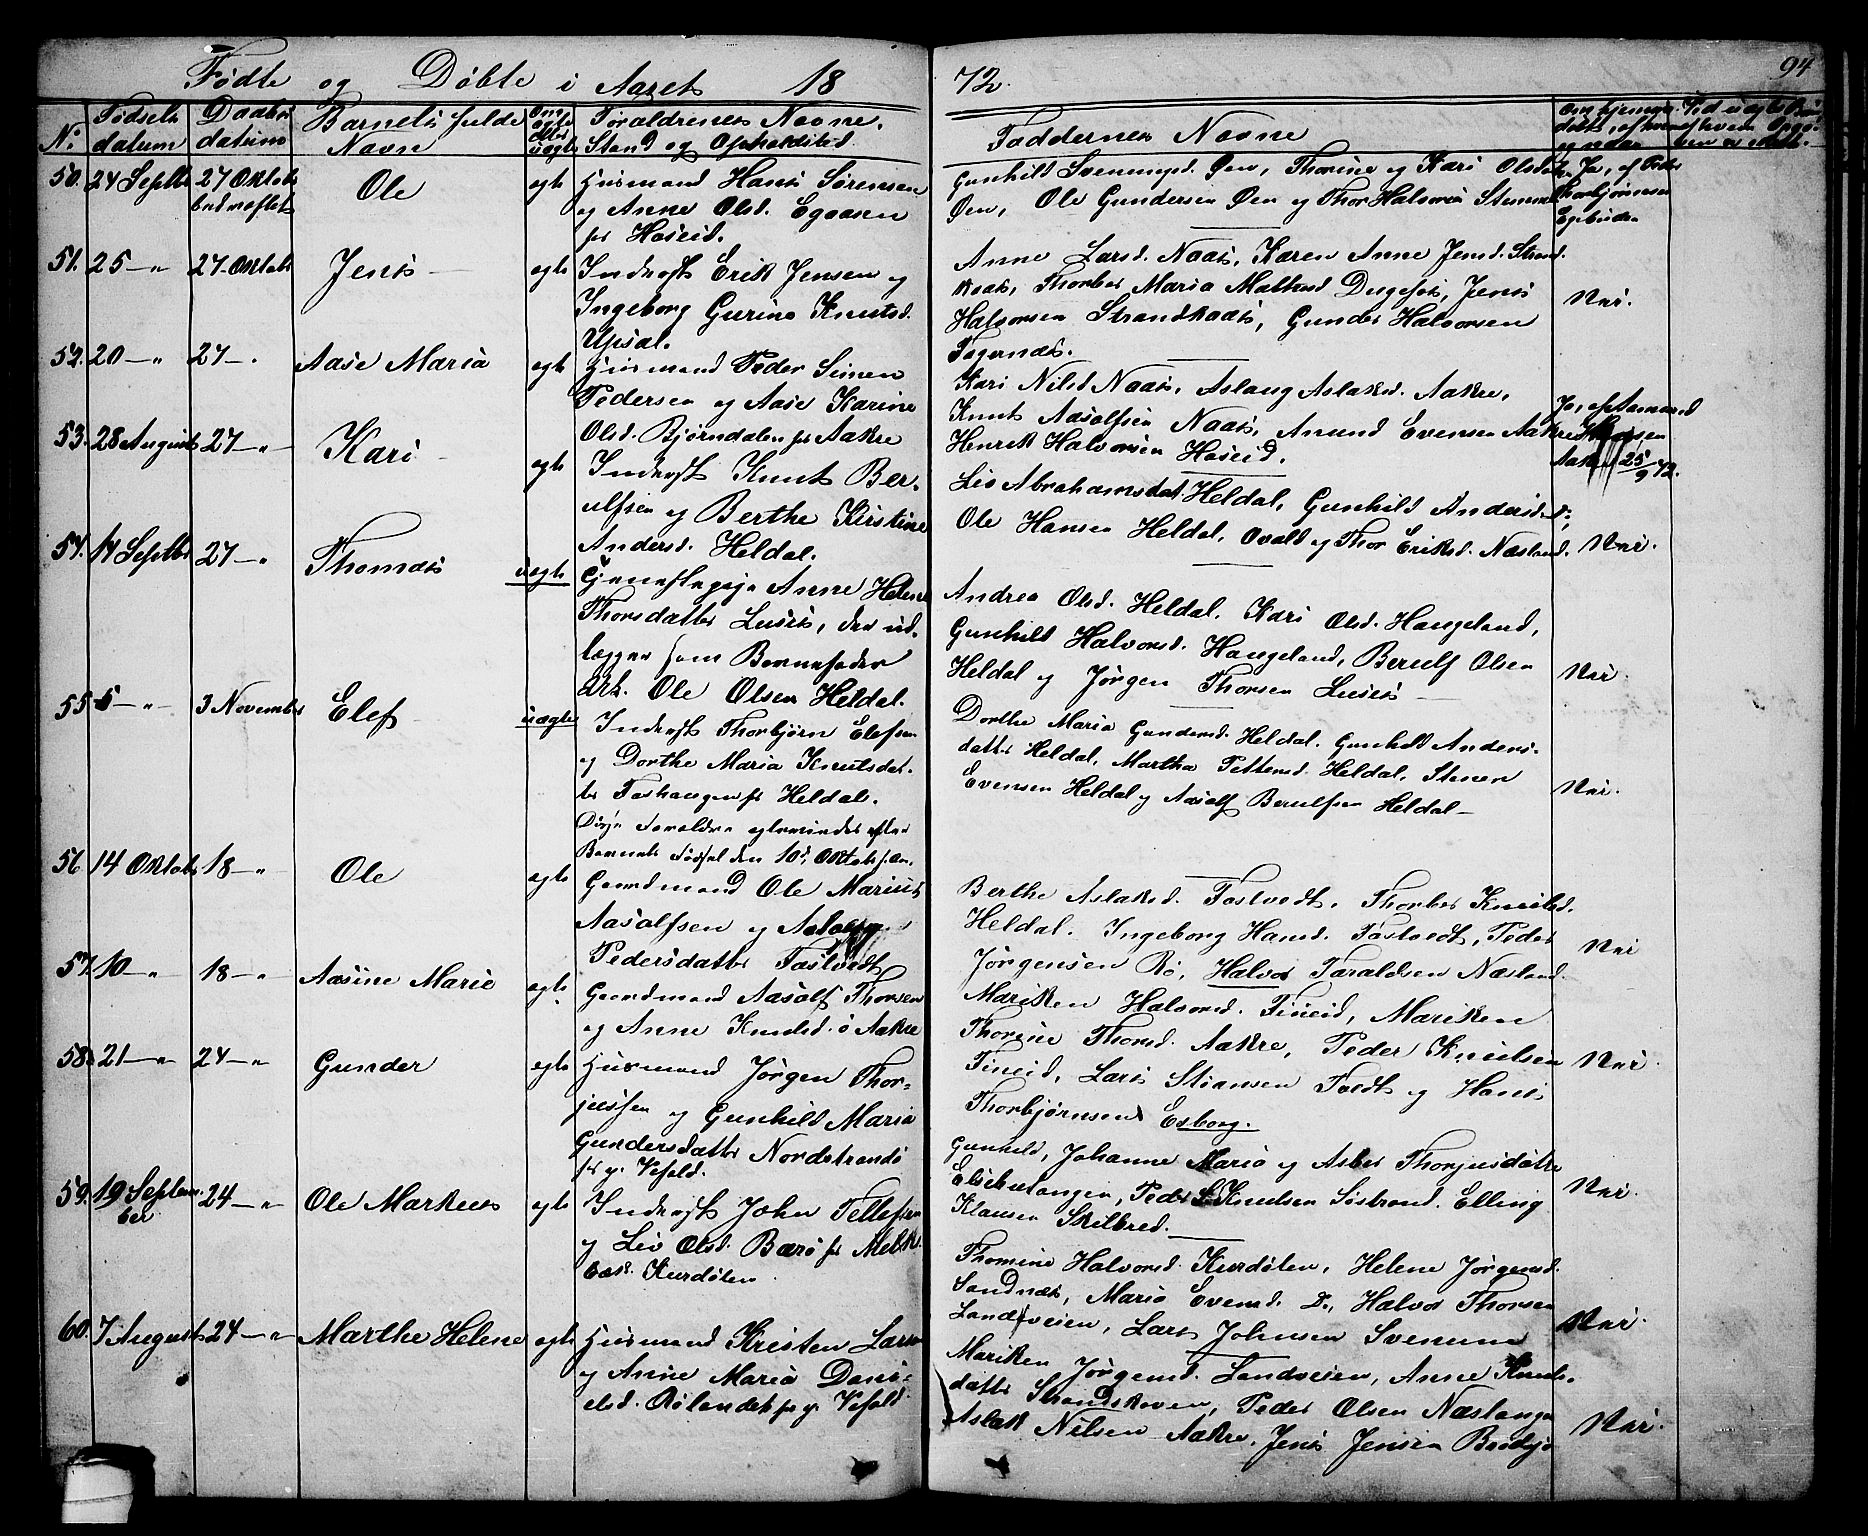 Fødte og Døbte i Aaret 18 72. 94
No. Fødsels datum Daabs datum Barnets fulde Navn Om ægte eller uægte Forældrenes Navne, Stand og Opholdsted
Faddernes Navne
50. 24 Septbr 27 Oktob. bekræftet Ole egte Husmand Hans Sørensen
og Anne Olsd. Egaasen
fr Haseid.
Gunhild Svenungsd. Øen, Thorine og Kari Olsd.
Øen, Ole Gundersen Øen og Thor Halvorsen
Ja, af Peder
Thorbjørnsen
51. 25 -"- 27 Oktob. Jens egte Inderst Erik Jensen og
Ingeborg Gurine Knutsd.
Upsal.
Anne Larsd. Naas, Karen Anne Jensd. Strand
kaas, Thorber Maria Dugesøs, Jens
Halvorsen Strandkaas, Gunder Halvorsen
Fogernæs.
Nei.
52. 20 -"- 27 -". Aase Maria egte Husmand Peder Simen
Pedersen og Aase Karine
Olsd. Bjørndalen fr Aakre
Kari Nilsd. Naas, Aslaug Aslaksd. Aakre,
Knut Aasolfsen Naas, Anund Evensen Aakre
Henrik Halvorsen Haseid.
Ja, af Aamund
25/9 72.
53. 28 August 27 -"- Kari egte Inderst Knut Ber-
ulfsen og Berthe Kirstine
Andersd. Heldal.
Liv Abrahamsdat Heldal, Gunhild Andersd. Do,
Ole Hansen Heldal, Ovald og Thor Eriks. Næsland.
Nei.
54. 14 Septbr 27 -"- Thomas uægte Tjenestepige Anne Helene
Thorsdatter Lunis, der ud-
lægger som Barnefader
Ark. Ole Olsen Heldal.
Andrea Olsd. Heldal, Kari Olsd. Haugeland,
Gunhild Halvorsd. Haugeland, Berulf Olsen
Heldal og Jørgen Thorsen
Nei.
55. 5 -"- 3 November Elef uægte Inderst Thorbjørn Elefsen
og Dorthe Maria Knutsdat-
ter Foshaugen fr Heldal.
Disse Forældre egteviedes efter
Barnets Fødsel den 10de Oktob. s. A.
Dorthe Maria Gundersd. Heldal, Gunhild Anders-
datter Heldal, Martha Pettersd. Heldal, Stener
Evensen Heldal og Aasolf Berulfsen Heldal -
Nei.
56. 14 Oktob. 18 -"- Ole egte Gaardmand Ole Marius
Aasolfsen og
Pedersdatter Fostvedt
Berthe Aslaksd. Fostvedt, Thorber Knutsd.
Heldal. Ingeborg Hansd. Fostvedt, Peder
Jørgensen Rø, Halvor Taraldsen Næsland.
Nei
57. 10 -"- 18 -"- Aasine Marie egte Gaardmand Aasolf Thorsen
og Anne Knutsd. Aakre
Mariken Halvorsd. Fineid, Mariken
Thorine Thorsd. Aakre, Peder Knutsen
Fineid, Lars Stiansen Tvedt og Hans
Thorbjørnsen Esborg.
Nei.
58. 21 -"- 24 -"- Gunder egte Husmand Jørgen Thor-
jussen og Gunhild Maria
Gundersdatter Nordstrandø
fr
Gunhild, Johanne Maria og Asber Thorjusdøtre
Elsebutangen, Peder Knutsen Søstrand. Elling
Klausen Skilbred.
Nei.
59. 19 Septem-ber 24 -"- Ole Markus egte Inderst John Tellefsen
og Liv Olsd. Barø fr
Kurdølen
Thomine Halvorsd. Kurdølen, Helene Jørgensd.
Sandnæs, Maria Evensd. Do, Halvor Thorsen
Landsveien, Lars Johnsen Svenum
Nei.
60. 7 August 24 -"- Marthe Helene egte Husmand Kristen Larsen
og Anne Maria Dani-
elsd. Rølandet
Mariken Jørgensd. Landsveien, Anne Knuts-
datter Strandskoven, Peder Olsen Næstangen
Aslak Nilsen Aakre, Jens Jensen
Nei.